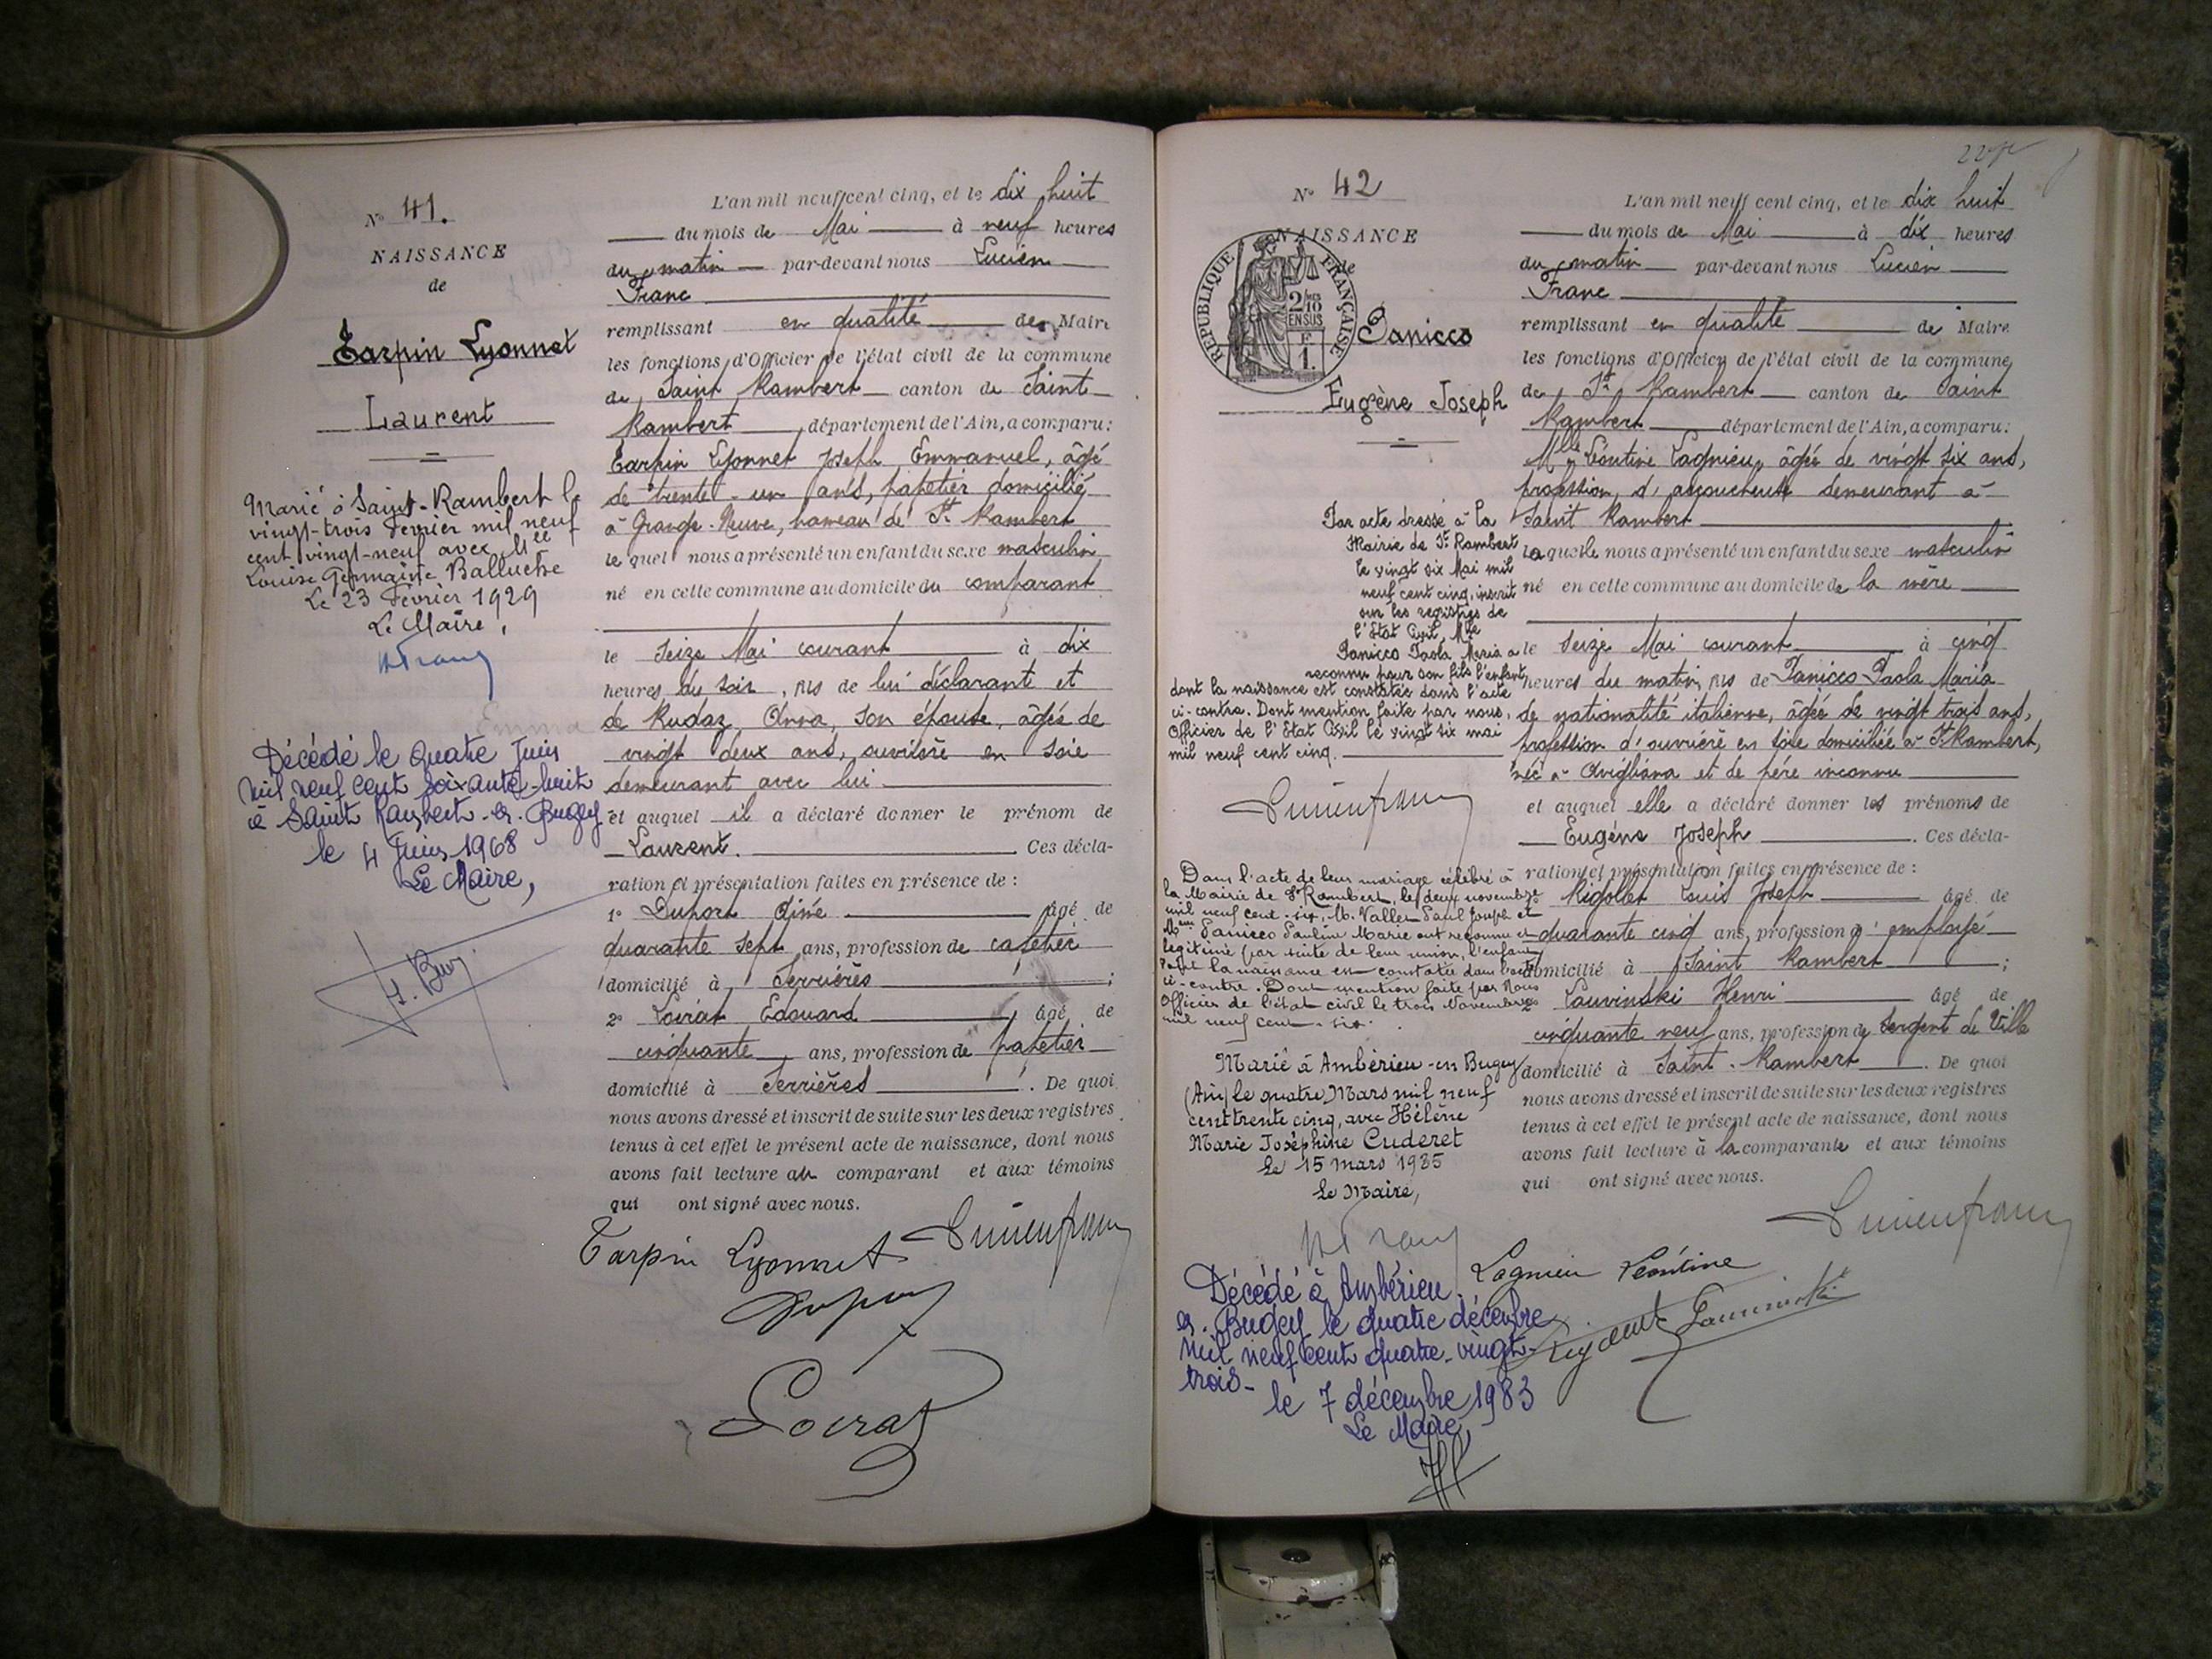 N° 41.
NAISSANCE
de
Tarpin Lyonnet
Laurent
Marié à Saint-Rambert le
vingt-trois Février mil neuf
cent vingt-neuf avec Mlle
Louise Germaine Balluche
Le 23 Février 1929
Le Maire,
Décédé le quatre Juin
mil neuf cent soixante-huit
à Saint Rambert-en-Bugey
le 4 Juin 1968
Le Maire,
L'an mil neuf cent cinq, et le dix huit
du mois de Mai à neuf heures
du matin par-devant nous Lucien
Franc
remplissant en qualité de Maire
les fonctions d'Officier de l'état civil de la commune
de Saint Rambert canton de Saint
Rambert département de l'Ain, a comparu:
Tarpin Lyonnet Joseph Emmanuel, âgé
de trente-un ans, papetier domicilié
à Grange-Neuve, hameau de St Rambert
le quel nous a présenté un enfant du sexe masculin
né en cette commune au domicile du comparant
le seize Mai courant à dix
heures du soir, fils de lui déclarant et
de Rudaz, Anna, son épouse, âgée de
vingt deux ans, ouvrière en soie
demeurant avec lui
et auquel il a déclaré donner le prénom de
Laurent. Ces décla-
ration et présentation faites en présence de :
1° Duport Aimé âgé de
quarante sept ans, profession de cafetier
domicilié à Serrières ;
2° Loirat Edouard âgé de
cinquante ans, profession de papetier
domicilié à Serrières. De quoi
nous avons dressé et inscrit de suite sur les deux registres
tenus à cet effet le présent acte de naissance, dont nous
avons fait lecture au comparant et aux témoins
qui ont signé avec nous.
Tarpin Lyonnet Lucien franc
Duport
Loirat
N° 42
NAISSANCE
de
RÉPUBLIQUE FRANÇAISE
2/10mes
EN SUS
F
1.
Panicco
Eugène Joseph
Par acte dressé à la
Mairie de St Rambert
le vingt six Mai mil
neuf cent cinq, inscrit
sur les registres de
l'Etat Civil, Mlle
Panicco Paola Maria a
reconnu pour son fils l'enfant
dont la naissance est constatée dans l'acte
ci-contre. Dont mention faite par nous,
Officier de l'Etat Civil le vingt six mai
mil neuf cent cinq.
Lucien franc
Dans l'acte de leur mariage célébré à
la Mairie de St Rambert, le deux novembre
mil neuf cent-six, M. Vallet Paul Joseph et
Mme Panicco Pauline Marie ont reconnu et
légitimé par suite de leur union, l'enfant
dont la naissance est constatée dans l'acte
ci-contre. Dont mention faite par Nous
Officier de l'état civil le trois Novembre
mil neuf cent-six.
Marié à Ambérieu-en-Bugey
(Ain) le quatre Mars mil neuf
cent trente cinq, avec Hélène
Marie Joséphine Cuderet
Le 15 mars 1935
Le Maire,
Décédé à Ambérieu
en-Bugey le quatre décembre
mil neuf cent quatre-vingt-
trois-
le 7 décembre 1983
Le Maire,
L'an mil neuf cent cinq, et le dix huit
du mois de Mai à dix heures
du matin par-devant nous Lucien
Franc
remplissant en qualité de Maire
les fonctions d'Officier de l'état civil de la commune
de St Rambert canton de Saint
Rambert département de l'Ain, a comparu:
Mlle Léontine Lagnieu, âgée de vingt six ans,
profession d'accoucheuse demeurant à
Saint Rambert
laquelle nous a présenté un enfant du sexe masculin
né en cette commune au domicile de la mère
le seize Mai courant à cinq
heures du matin, fils de Panicco Paola Maria
de nationalité italienne, âgée de vingt trois ans,
profession d'ouvrière en soie domiciliée à St Rambert,
née à Avigliana et de père inconnu
et auquel elle a déclaré donner les prénoms de
Eugène Joseph. Ces décla-
ration et présentation faites en présence de :
Rigollet Louis Joseph âgé de
quarante cinq ans, profession d'employé
domicilié à Saint Rambert ;
2° Lauvinski Henri âgé de
cinquante neuf ans, profession de Sergent de Ville
domicilié à Saint-Rambert. De quoi
nous avons dressé et inscrit de suite sur les deux registres
tenus à cet effet le présent acte de naissance, dont nous
avons fait lecture à la comparante et aux témoins
qui ont signé avec nous.
Lucien franc
Lagnieu Léontine